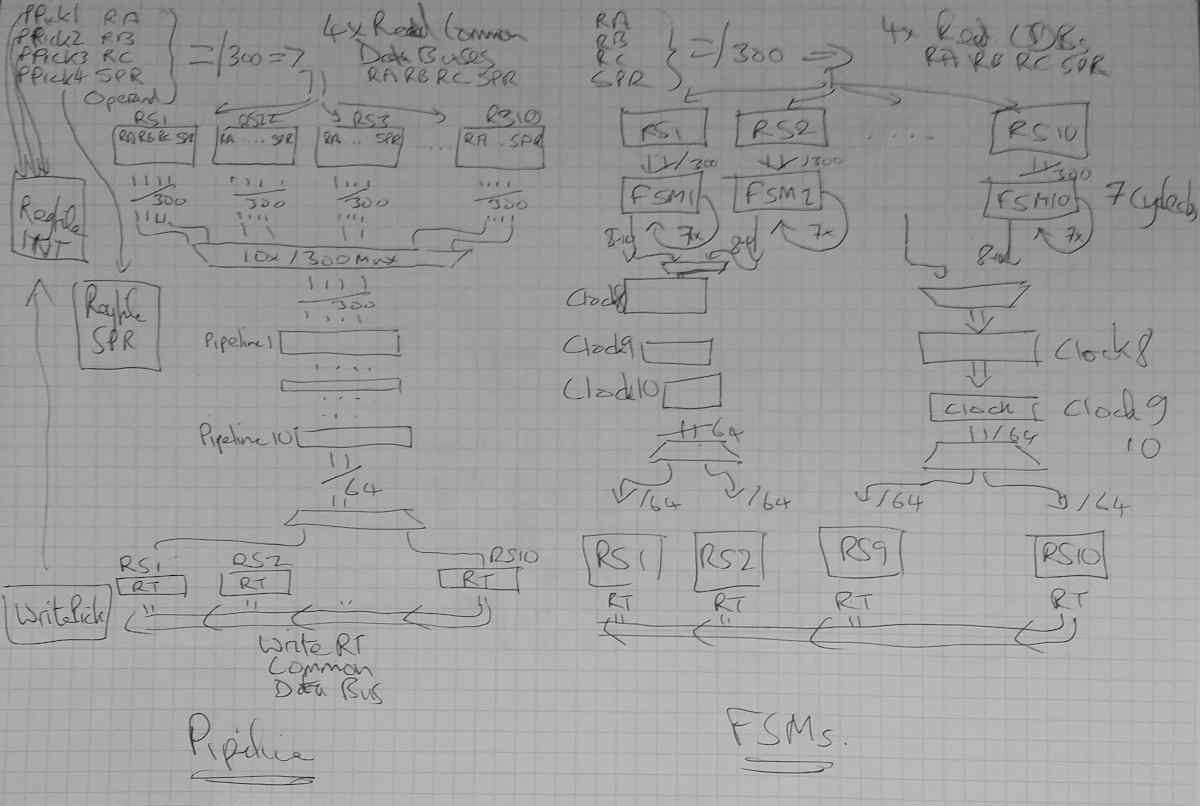 PPick1 RA
PPick2 RB
PPick3 RC
PPick4 SPR
Operand
=/300=>
4x Read Common
Data Buses
RA RB RC SPR
RS1
RS2
RS3
RS10
RA RB RC SPR
RA ... SPR
RA .. SPR
...
RA . SPR
/300
/300
/300
/300
Regfile
INT
10x/300 Mux
/300
Regfile
SPR
Pipeline 1
Pipeline 10
/64
RS1
RS2
RS10
RT
RT
RT
WritePick
Write RT
Common
Data Bus
Pipeline
RA
RB
RC
SPR
=/300 =>
4x Read CDBs
RA RB RC SPR
RS1
RS2
. . . . .
RS10
/300
/300
/300
FSM1
FSM2
FSM10
7x
7x
7x
7 Cycles
8-10
8-10
8-10
Clock8
Clock9
Clock10
Clock 8
Clock
Clock 9
10
/64
/64
/64
/64
/64
/64
RS1
RS2
RS9
RS10
RT
RT
RT
RT
FSMs.